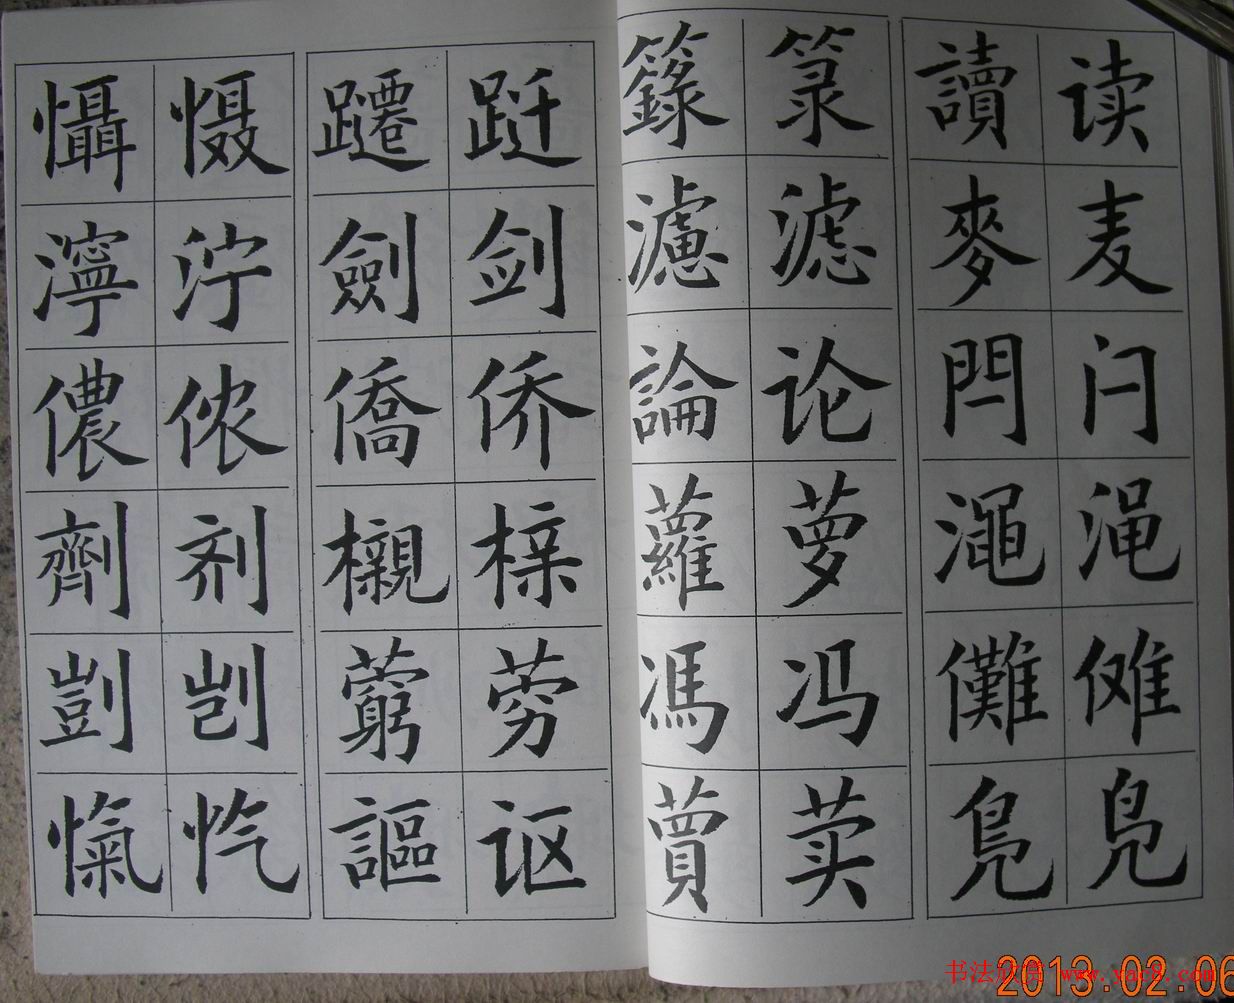 懾 慑 躚 跹 籙 箓 讀 读
濘 泞 劍 剑 濾 滤 麥 麦
儂 侬 僑 侨 論 论 閂 闩
劑 剂 櫬 榇 蘿 萝 澠 渑
剴 剀 藭 䓖 馮 冯 儺 傩
愾 忾 謳 讴 蕒 荬 鳧 凫
书法欣赏 www.yac8.com
2013.02.06